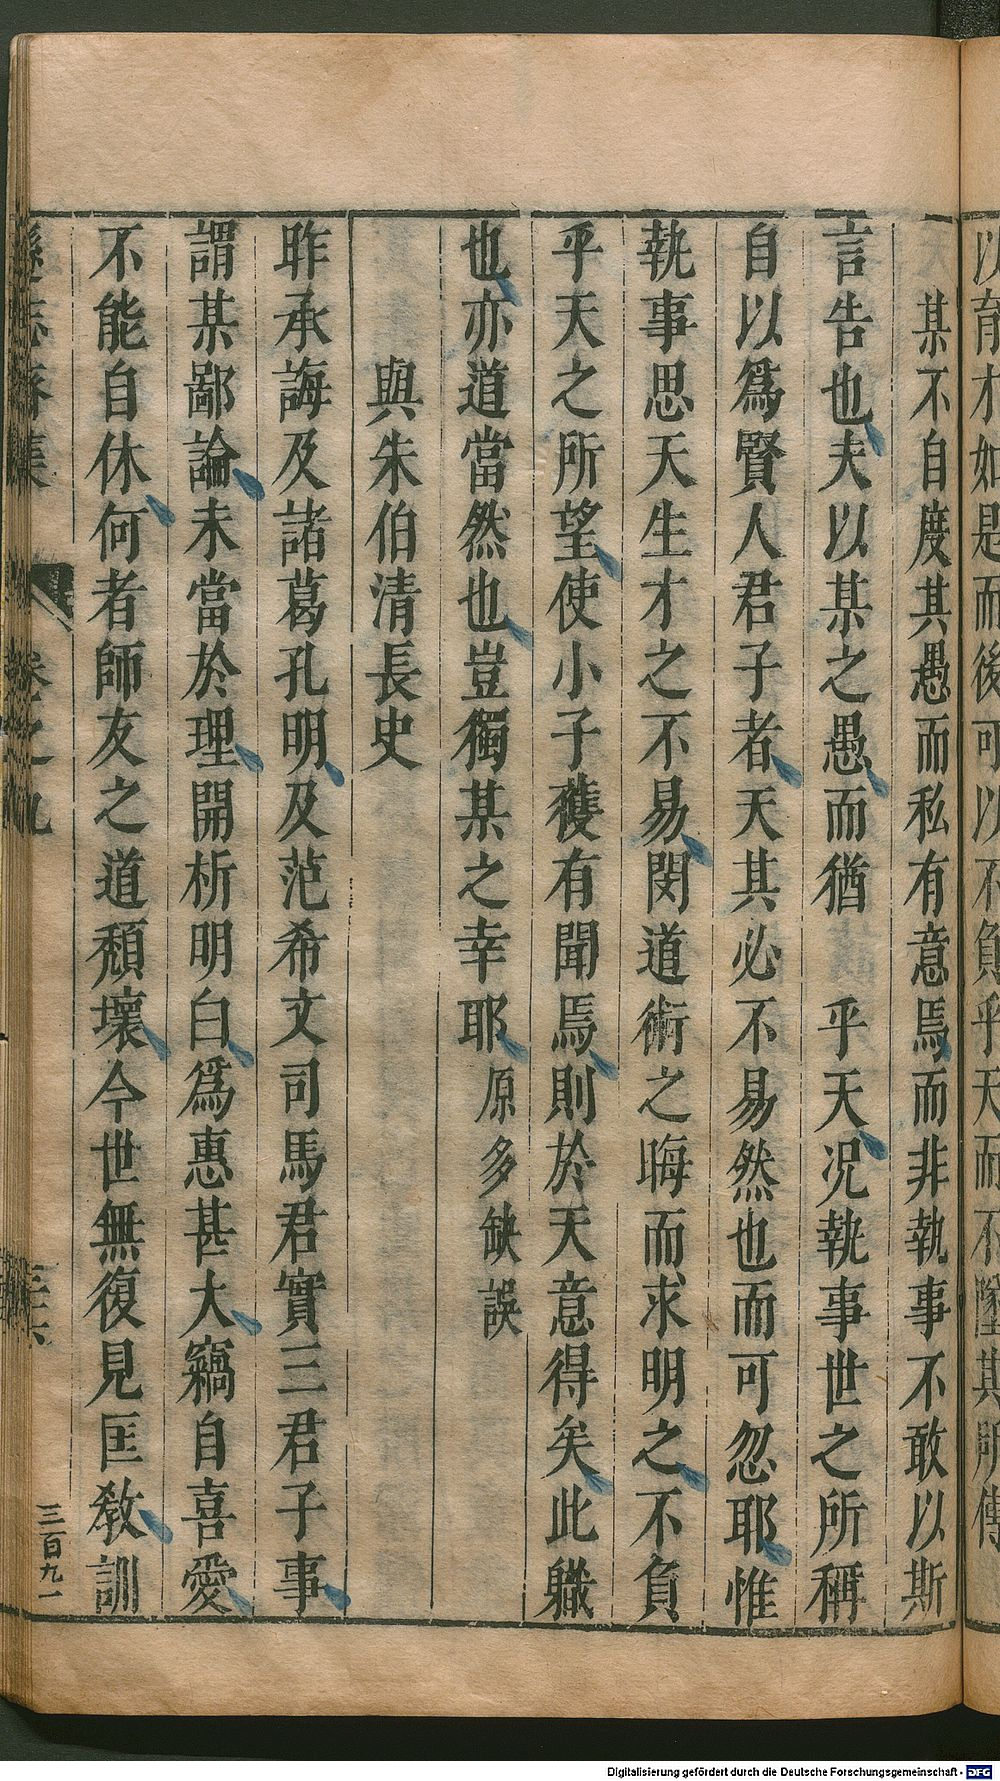 以育才如是而後可以不負乎天而不墜其所傳
某不自度其愚而私有意焉而非執事不敢以斯
言告也夫以某之愚而猶　乎天况執事世之所稱
自以爲賢人君子者天其必不易然也而可忽耶惟
執事思天生才之不易閔道術之晦而求明之不負
乎天之所望使小子獲有聞焉則於天意得矣此職
也亦道當然也豈獨某之幸耶原多缺誤
與朱伯清長史
昨承誨及諸葛孔明及范希文司馬君實三君子事
謂某鄙論未當於理開析明白爲惠甚大竊自喜愛
不能自休何者師友之道頹壞今世無復見匡教訓
遜志齋集　卷之九　三十六
三百九一
Digitalisierung gefördert durch die Deutsche Forschungsgemeinschaft - DFG